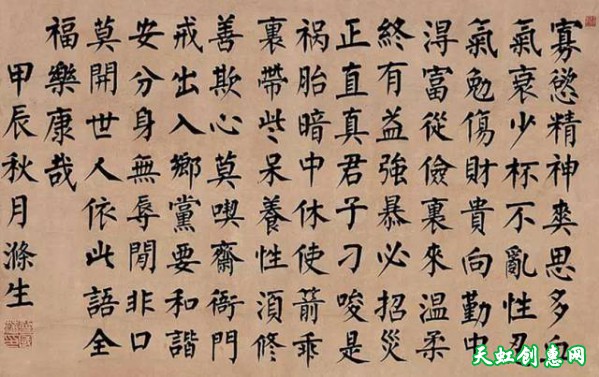 寡慾精神爽思多血
氣衰少杯不亂性忍
氣勉傷財貴向勤中
淂富從儉裏來溫柔
終有益強暴必招災
正直真君子刁唆是
禍胎暗中休使箭乖
裏帶些呆養性須修
善欺心莫喫齋衙門
戒出入鄉黨要和諧
安分身無辱閒非口
莫開世人依此語全
福樂康哉
甲辰秋月滌生
天虹创惠网